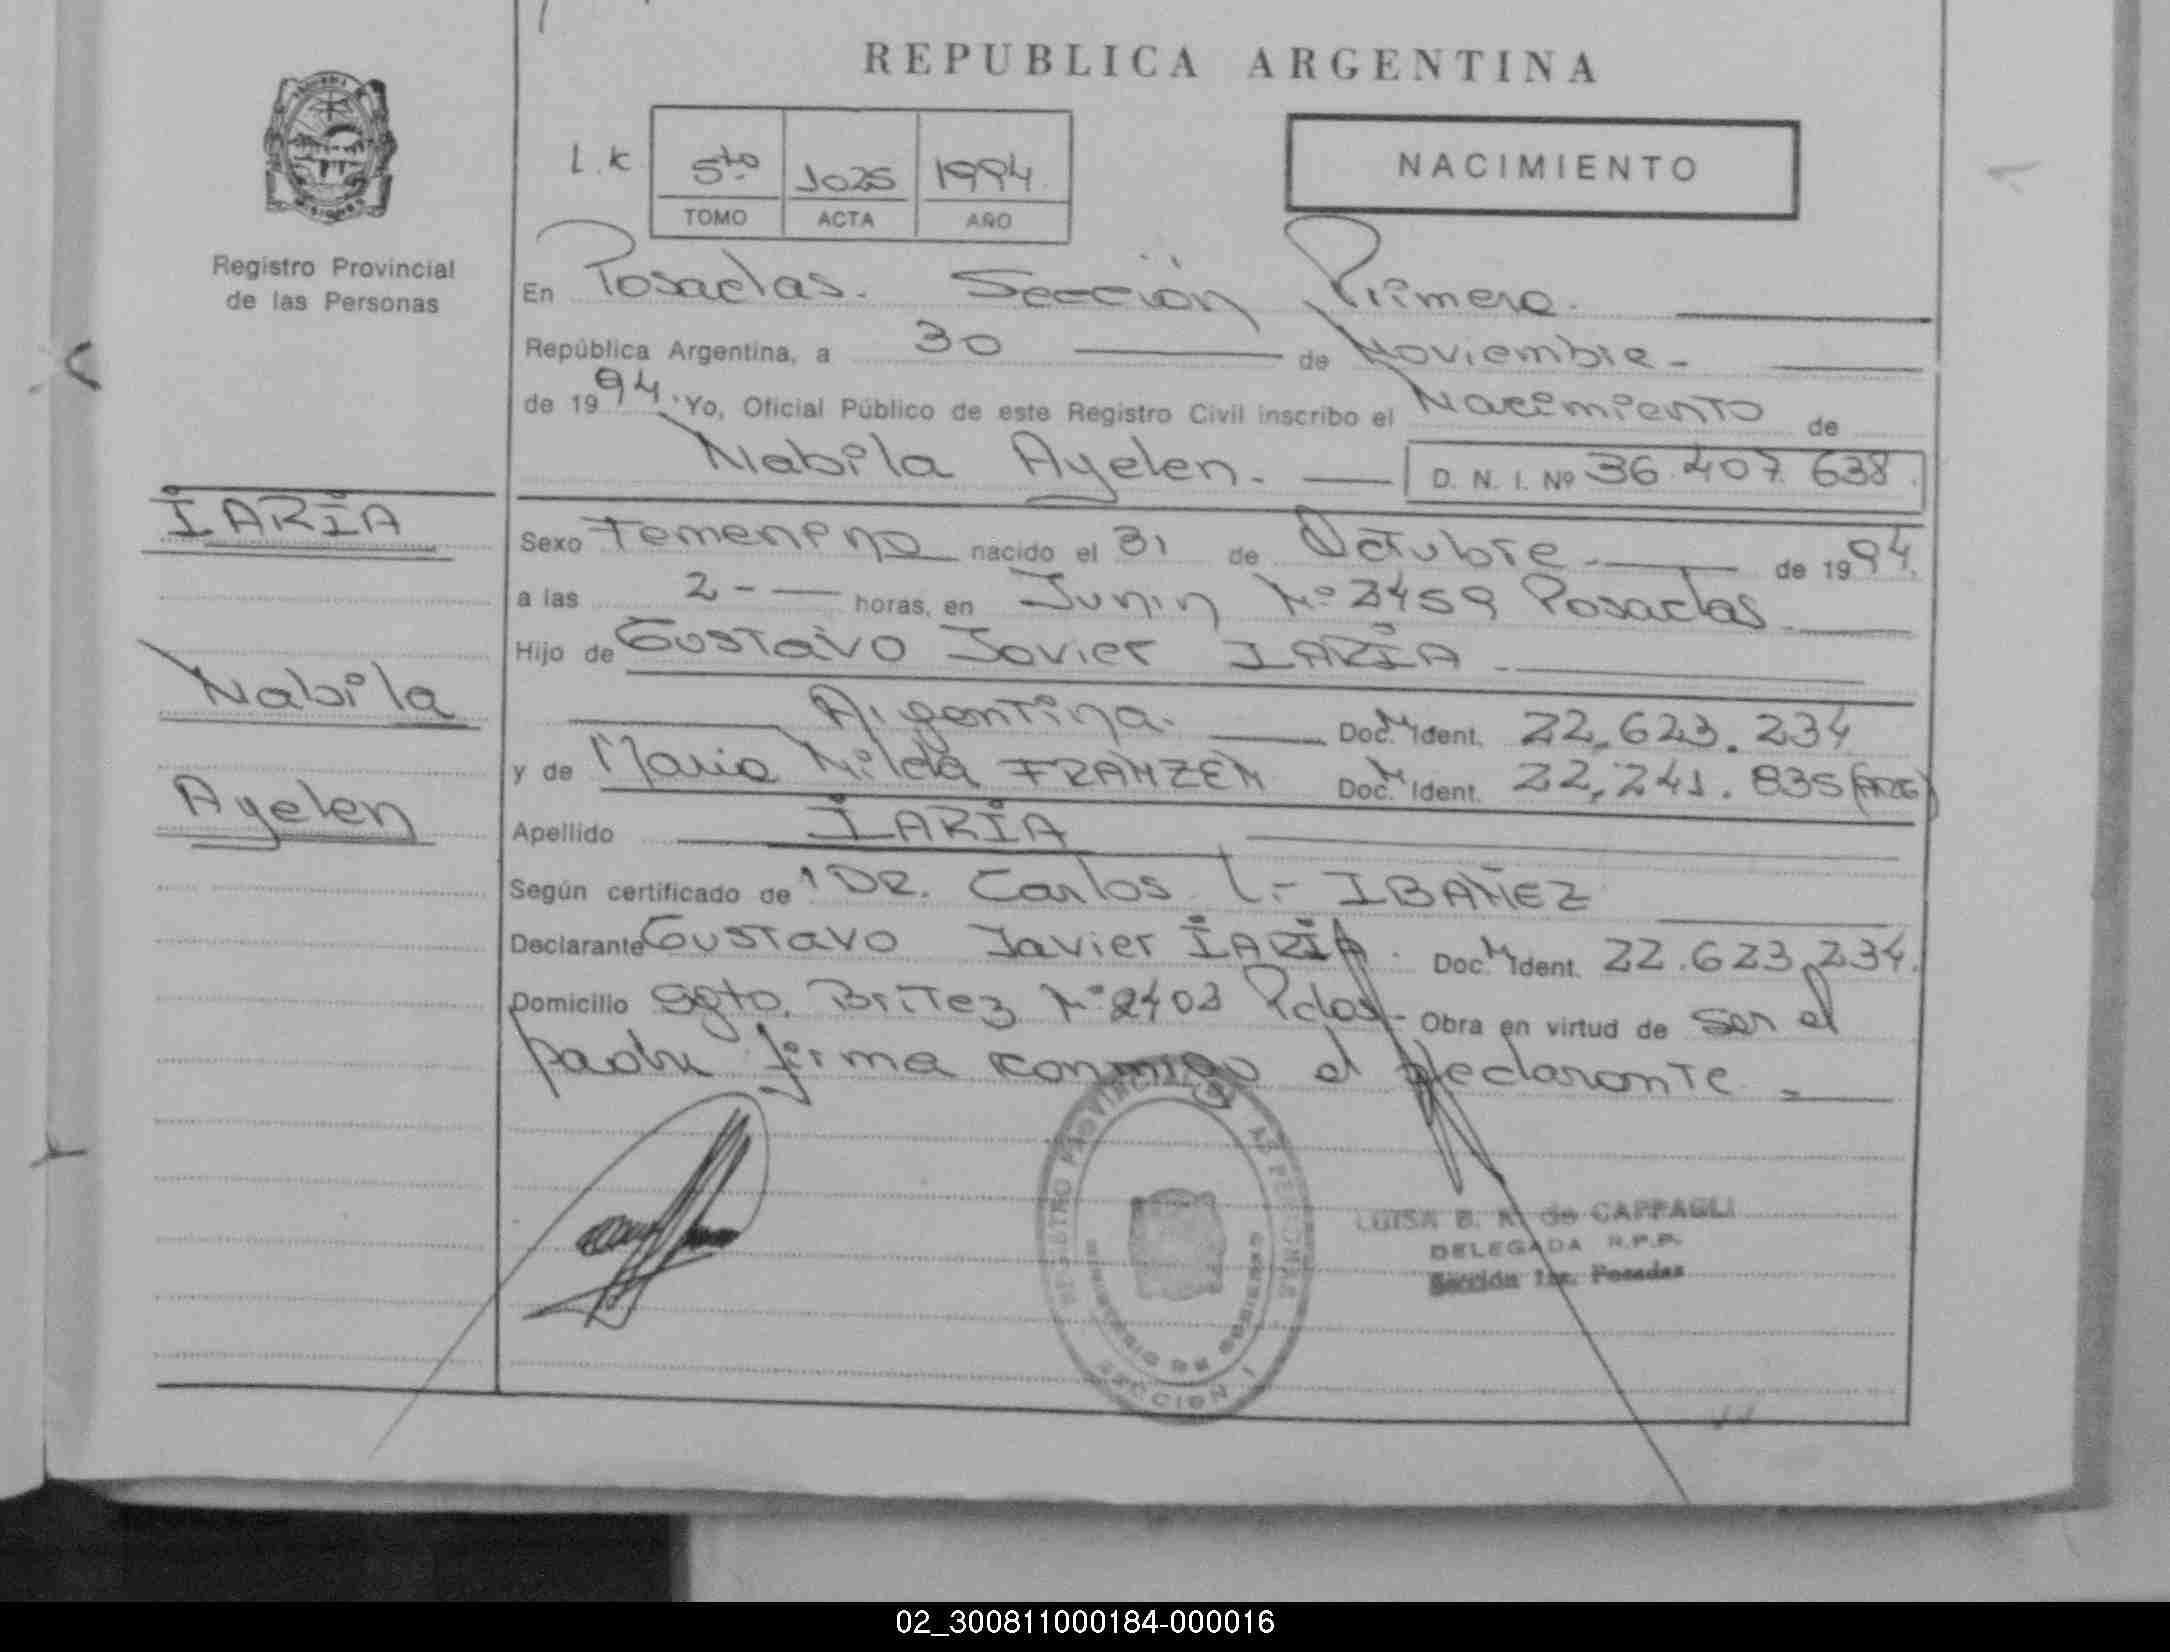 REPUBLICA ARGENTINA
L.K 5to 1025 1994
TOMO ACTA AÑO
NACIMIENTO
MISIONES
Registro Provincial
de las Personas
En Posadas. Sección Primera.
República Argentina, a 30 de Noviembre
de 1994. Yo, Oficial Público de este Registro Civil inscribo el Nacimiento de
Nabila Ayelen. D. N. I. Nº 36.407.638
IARIA
Nabila
Ayelen
Sexo Femenino nacido el 31 de Octubre de 1994.
a las 2 horas, en Junin Nº 2459 Posadas
Hijo de Gustavo Javier IARIA
Argentina. Doc. M Ident. 22.623.234
y de Maria Nilda FRANZEN Doc. M Ident. 22.241.835 (ARG)
Apellido IARIA
Según certificado de DR. Carlos L. IBAÑEZ
Declarante Gustavo Javier IARIA. Doc. M Ident. 22.623.234.
Domicilio Sgto. Britez Nº 2403 Pdas. Obra en virtud de ser el
padre firma conmigo el declarante
REGISTRO PROVINCIAL DE LAS PERSONAS
MINISTERIO DE GOBIERNO
SECCION I
LUISA B. de CAPPAGLI
DELEGADA R.P.P.
Sección 1ra. Posadas
02_300811000184-000016